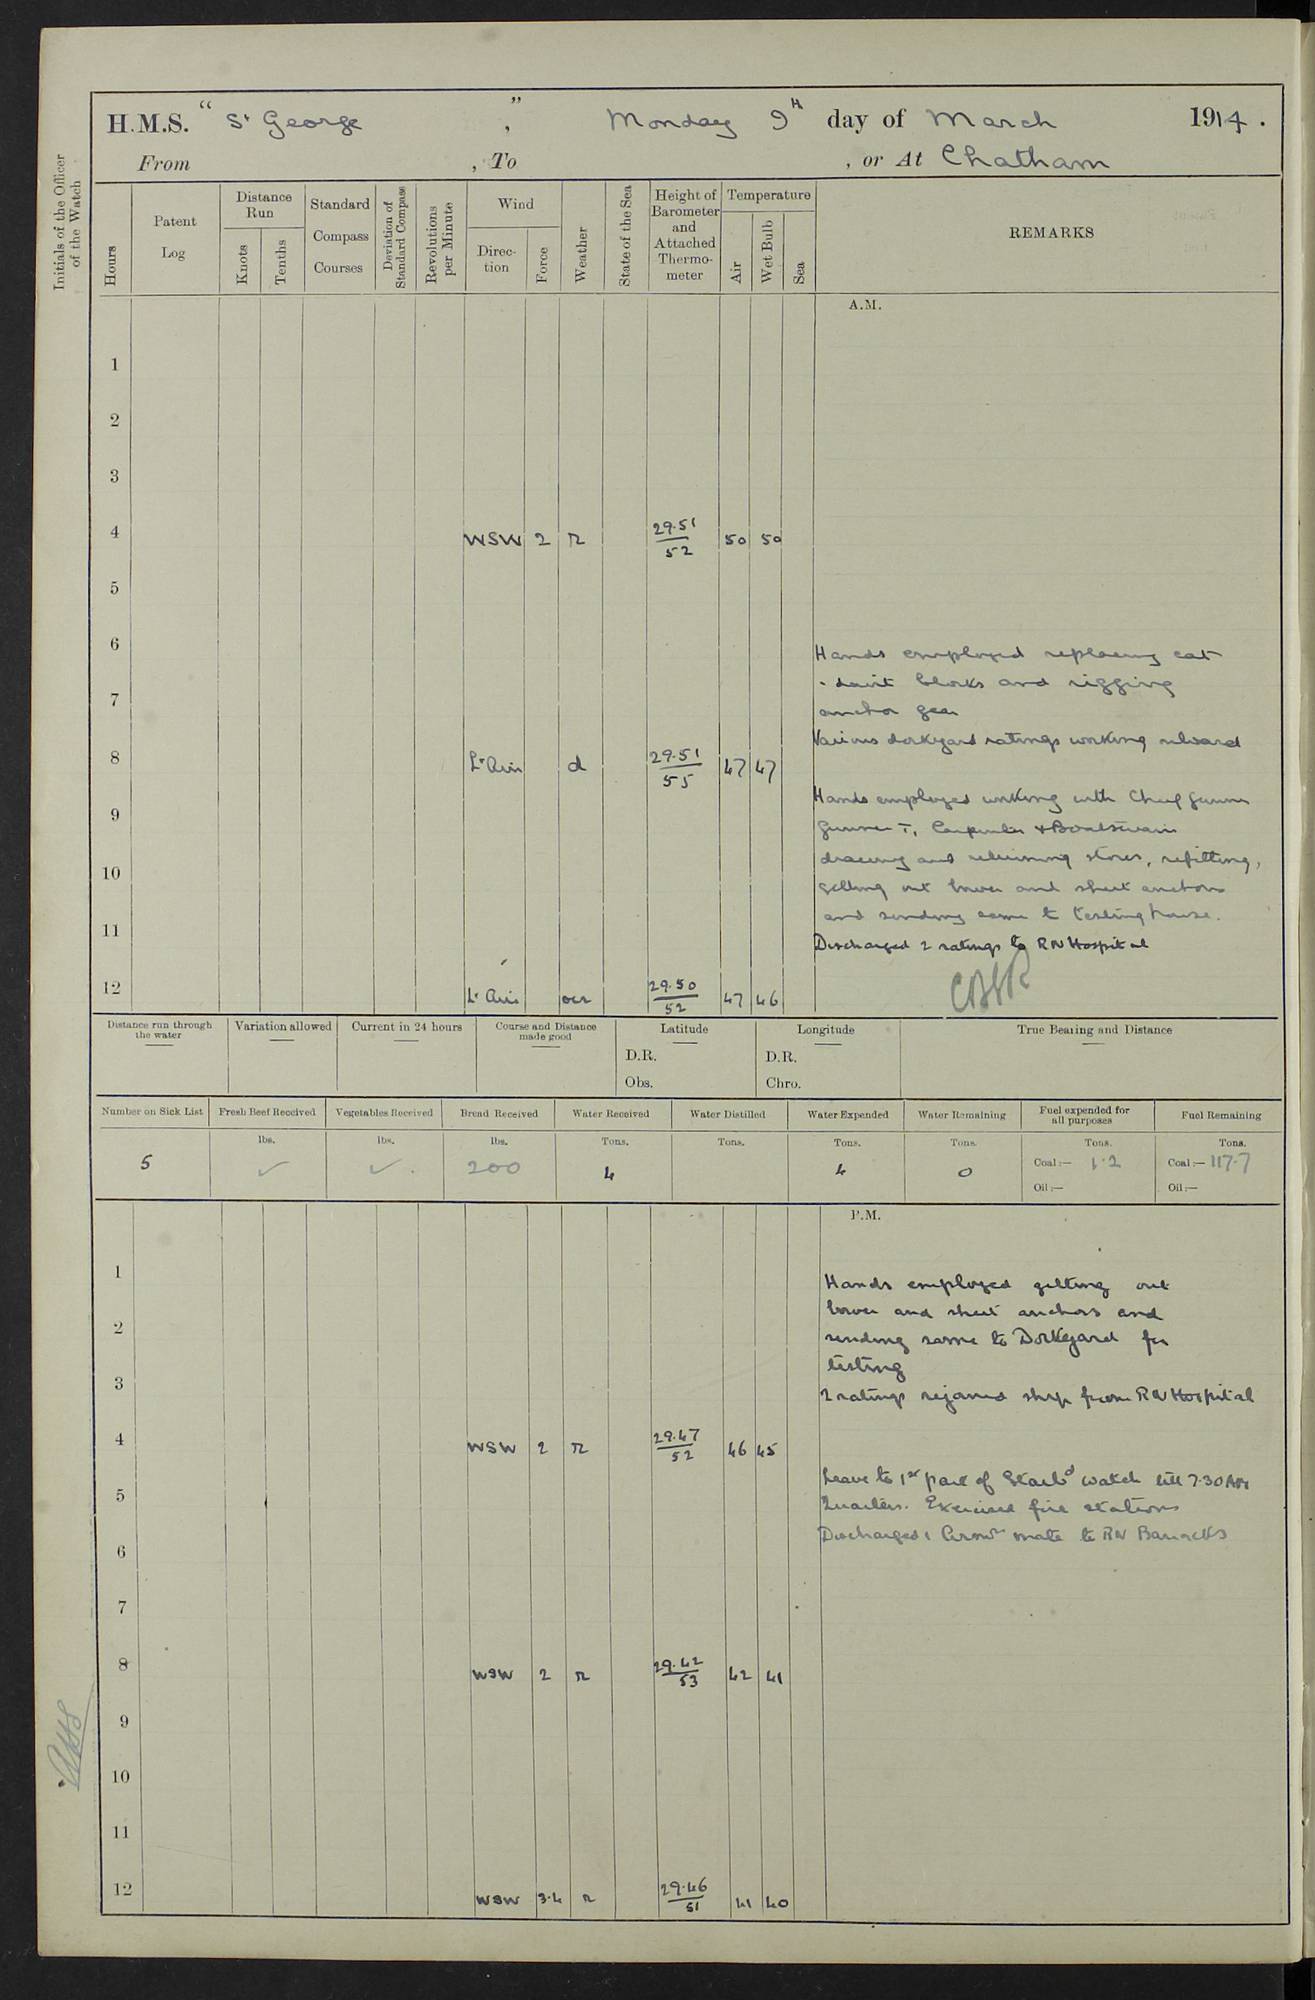 H.M.S. "St George" , Monday 9th day of March 1914.
From , To , or At Chatham
Initials of the Officer of the Watch
Hours
Patent Log
Distance Run
Knots
Tenths
Standard Compass Courses
Deviation of Standard Compass
Revolutions per Minute
Wind
Direction
Force
Weather
State of the Sea
Height of Barometer and Attached Thermometer
Temperature
Air
Wet Bulb
Sea
REMARKS
A.M.
1
2
3
4 WSW 2 r 29.51/52 50 50
5
6
Hands employed replacing cat
davit blocks and rigging
7
anchor gear
Various dockyard ratings working onboard
8 Lt Airs d 29.51/55 47 47
Hands employed working with Chief Gunner
9
Gunner T, Carpenter & Boatswain
drawing and returning stores, refitting,
10
getting out bower and sheet anchors
and sending same to testing house.
11
Discharged 2 ratings to RN Hospital
12 Lt Airs ocr 29.50/52 47 46
Distance run through the water
Variation allowed
Current in 24 hours
Course and Distance made good
Latitude
D.R.
Obs.
Longitude
D.R.
Chro.
True Bearing and Distance
Number on Sick List
5
Fresh Beef Received
lbs.
✓
Vegetables Received
lbs.
✓.
Bread Received
lbs.
200
Water Received
Tons.
4
Water Distilled
Tons.
Water Expended
Tons.
4
Water Remaining
Tons.
0
Fuel expended for all purposes
Tons.
Coal:— 1.2
Oil:—
Fuel Remaining
Tons.
Coal:— 117.7
Oil:—
P.M.
1
Hands employed getting out
bower and sheet anchors and
2
sending same to Dockyard for
testing
3
2 ratings rejoined ship from RN Hospital
4 WSW 2 r 29.47/52 46 45
Leave to 1st part of Starbd watch till 7.30 AM
5
Quarters. Exercised fire stations
Discharged 1 Armr mate to RN Barracks
6
7
8 WSW 2 r 29.42/53 42 41
9
10
11
12 WSW 3.4 r 29.46/51 41 40